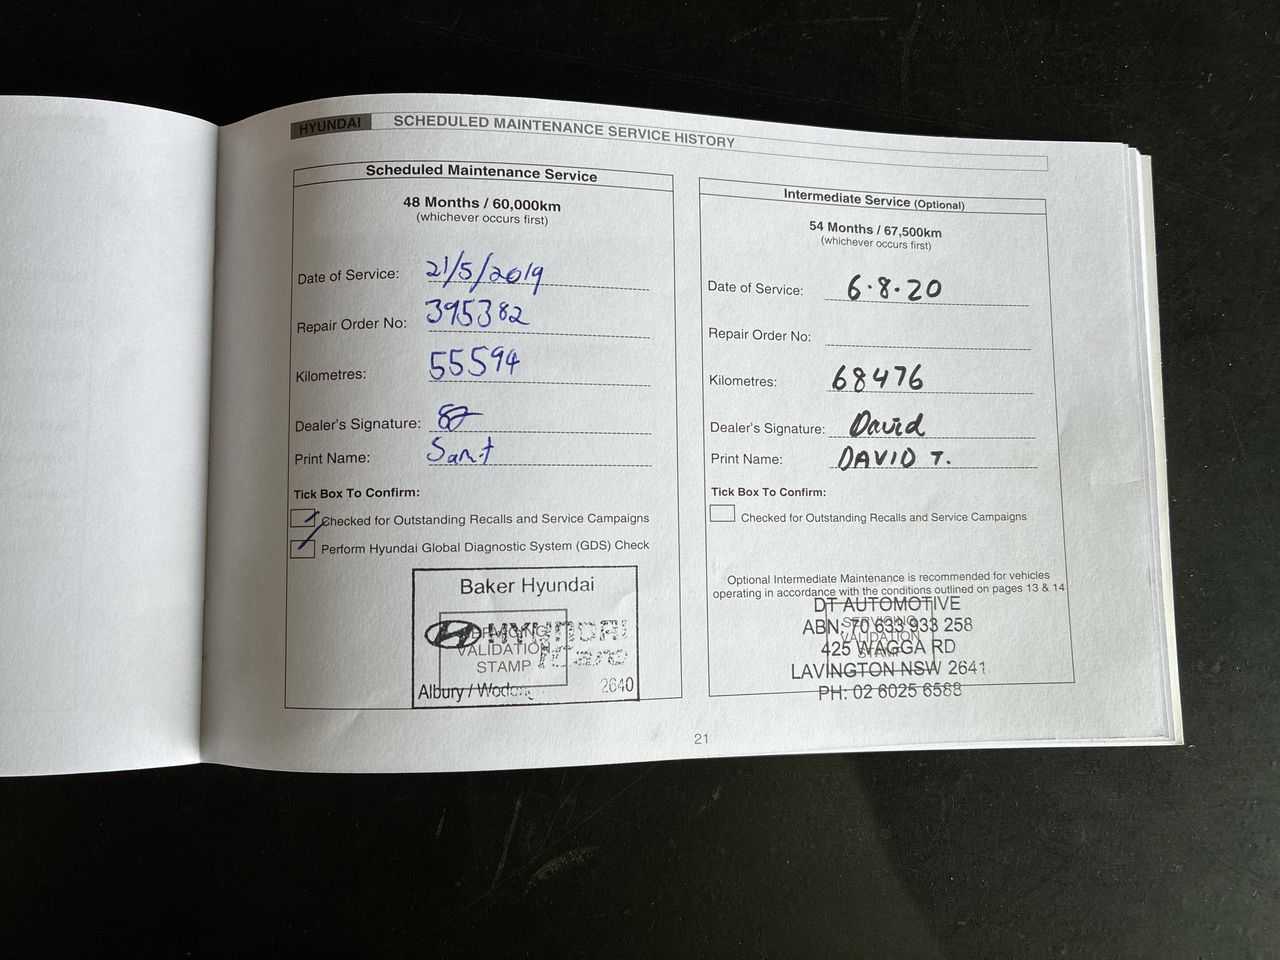 HYUNDAI SCHEDULED MAINTENANCE SERVICE HISTORY
Scheduled Maintenance Service
48 Months / 60,000km
(whichever occurs first)
Date of Service: 21/5/2019
Repair Order No: 395382
Kilometres: 55594
Dealer's Signature:
Print Name:
Tick Box To Confirm:
Checked for Outstanding Recalls and Service Campaigns
Perform Hyundai Global Diagnostic System (GDS) Check
Baker Hyundai
HYUNDAI
iCare
SERVICING
VALIDATION
STAMP
Albury / 2640
Intermediate Service (Optional)
54 Months / 67,500km
(whichever occurs first)
Date of Service: 6.8.20
Repair Order No:
Kilometres: 68476
Dealer's Signature: David
Print Name: DAVID T.
Tick Box To Confirm:
Checked for Outstanding Recalls and Service Campaigns
Optional Intermediate Maintenance is recommended for vehicles
operating in accordance with the conditions outlined on pages 13 & 14
DT AUTOMOTIVE
ABN: 70 633 933 258
425 WAGGA RD
LAVINGTON NSW 2641
PH: 02 6025 6588
SERVICING
VALIDATION
STAMP
21